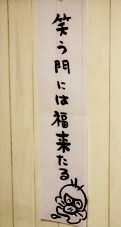 笑う門には福来たる